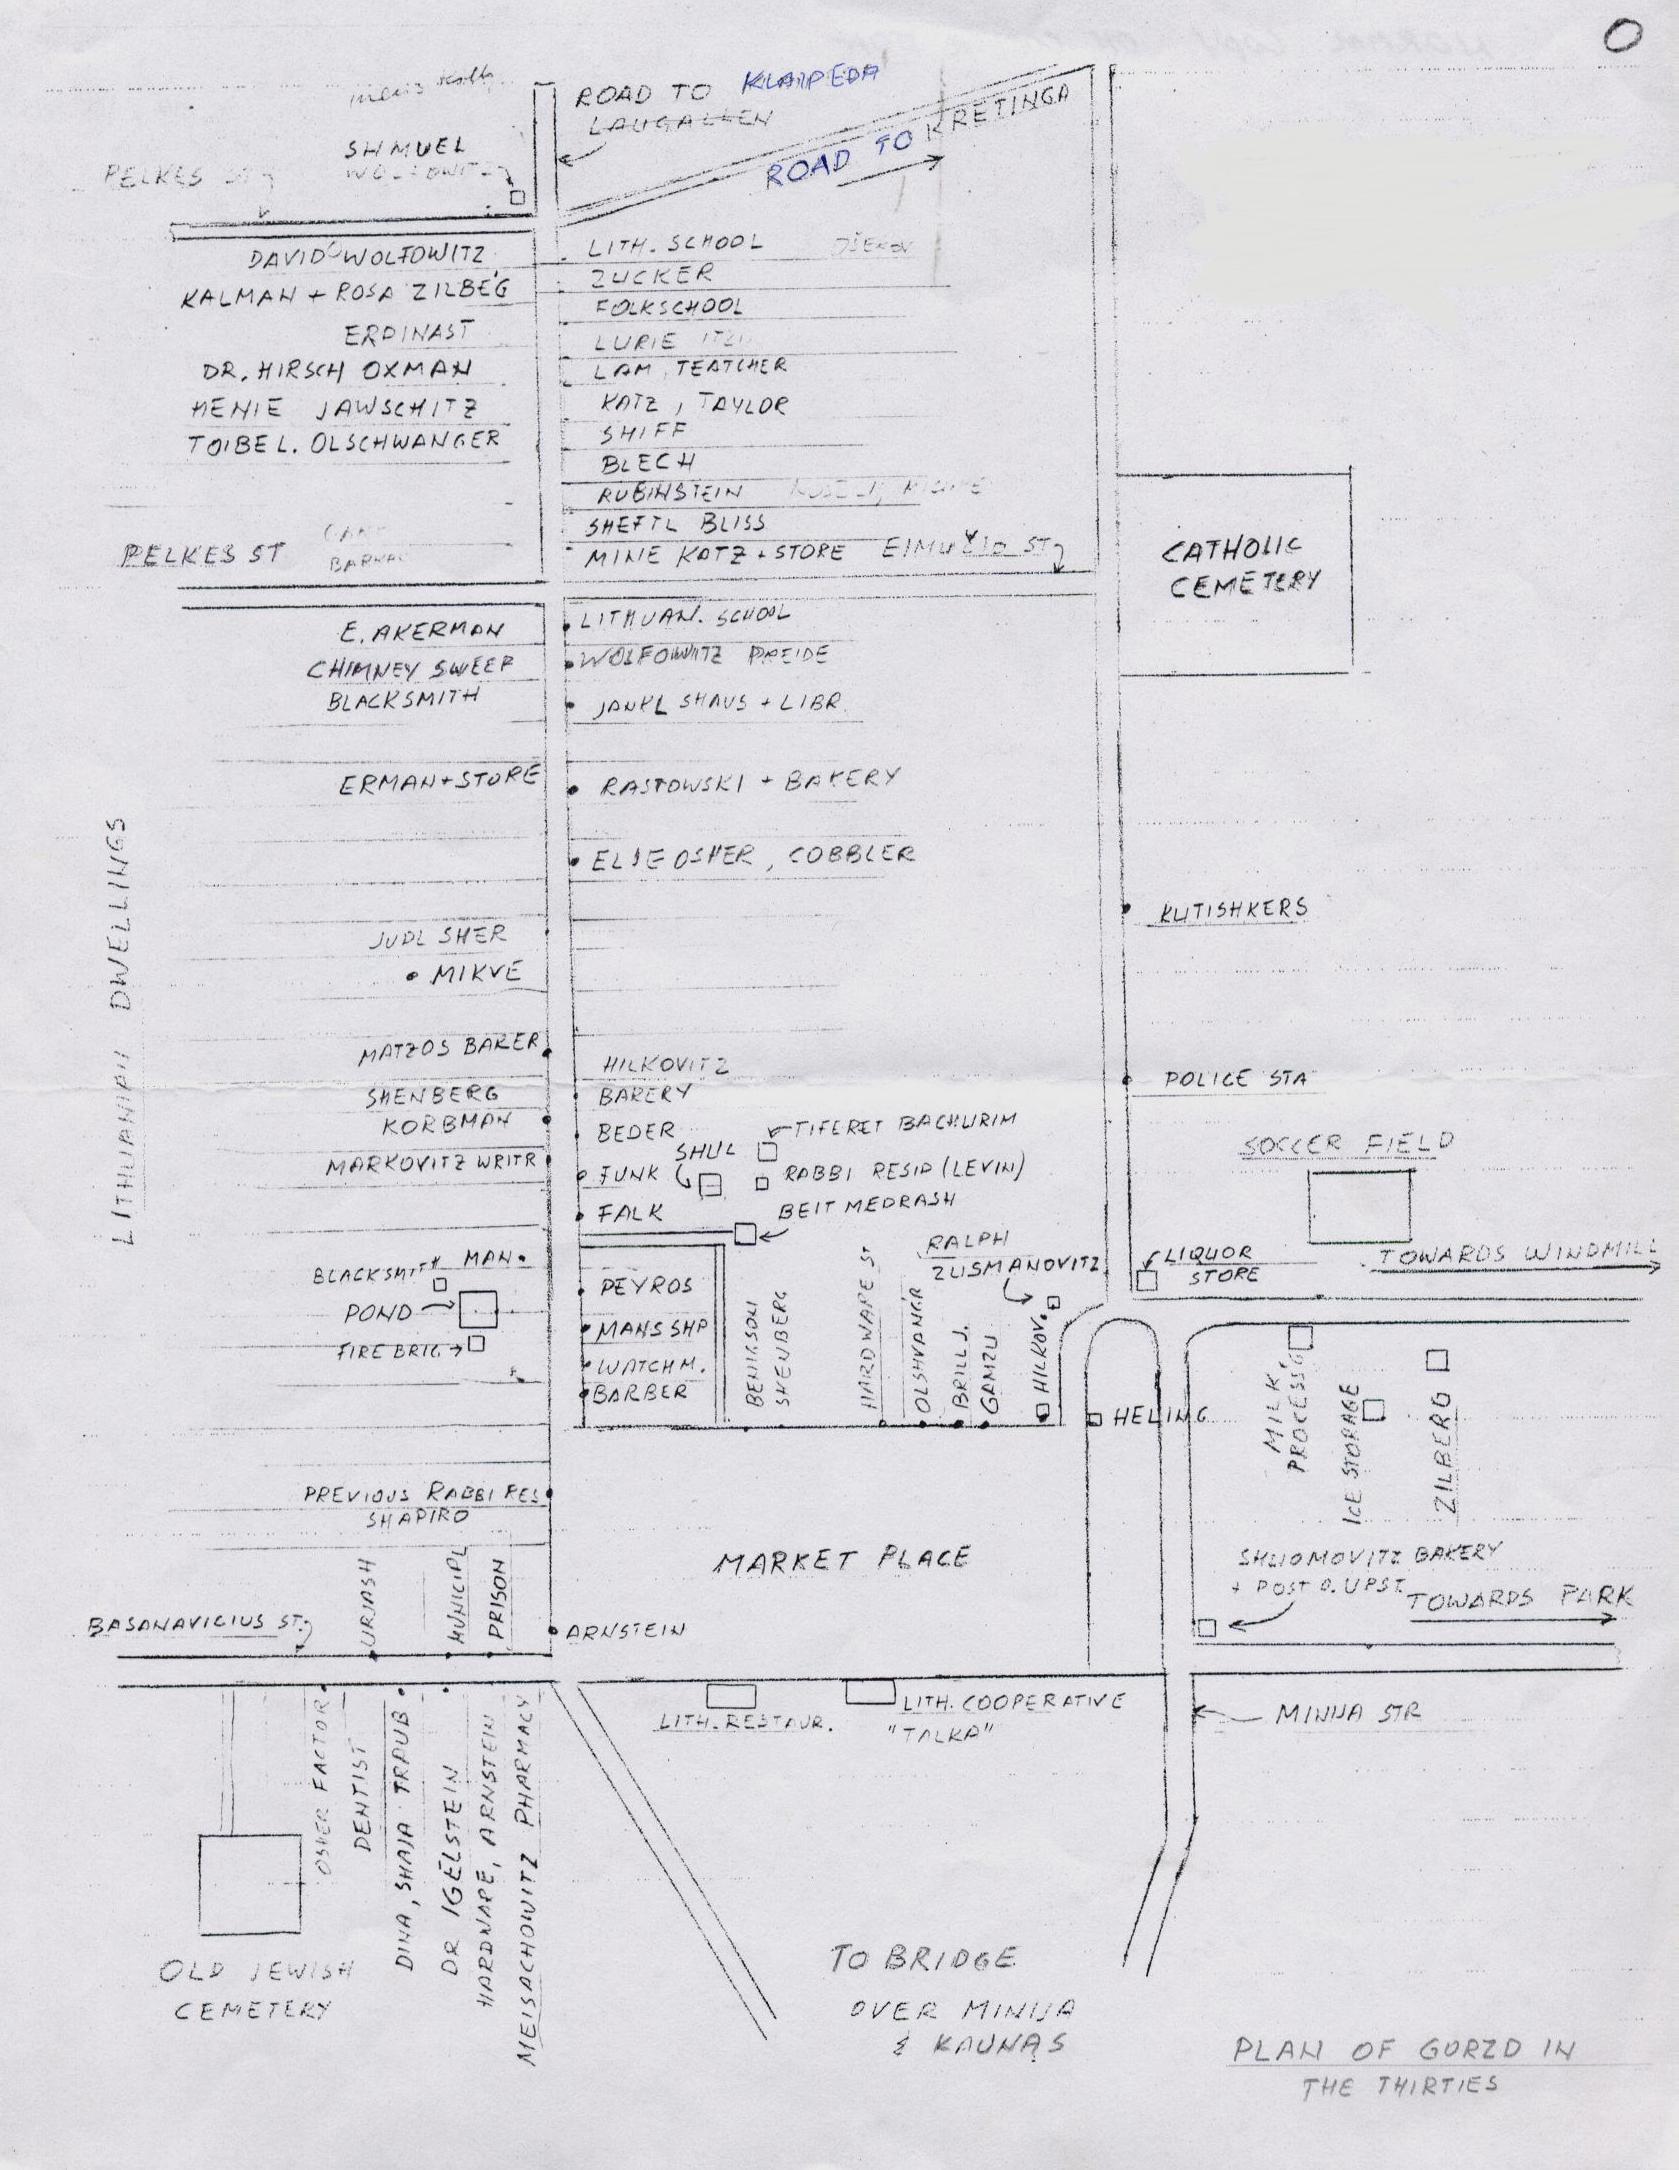 O
ROAD TO KLAIPEDA
LAUGALLEN
ROAD TO KRETINGA
SHMUEL
PELKES ST
DAVID WOLFOWITZ
KALMAN + ROSA ZILBEG
ERDINAST
DR. HIRSCH OXMAN
HENIE JAWSCHITZ
TOIBE L. OLSCHWANGER
LITH. SCHOOL
ZUCKER
FOLKSCHOOL
LURIE
LAM, TEATCHER
KATZ, TAYLOR
SHIFF
BLECH
RUBINSTEIN
SHEFTL BLISS
MINE KATZ + STORE
ST
PELKES ST
CATHOLIC
CEMETERY
E. AKERMAN
CHIMNEY SWEEP
BLACKSMITH
ERMAN + STORE
JUDL SHER
MIKVE
MATZOS BAKER
SHENBERG
KORBMAN
MARKOVITZ WRITR
LITHUANIAN DWELLINGS
LITHUAN. SCHOOL
WOLFOWITZ PREIDE
JANKL SHAUS + LIBR.
RASTOWSKI + BAKERY
ELIE OSHER, COBBLER
HILKOVITZ
BAKERY
BEDER
FUNK
FALK
SHUL
TIFERET BACHURIM
RABBI RESID (LEVIN)
BEIT MEDRASH
KUTISHKERS
POLICE STA
SOCCER FIELD
TOWARDS WINDMILL
LIQUOR
STORE
RALPH
ZUSMANOVITZ
BLACKSMITH
MAN.
POND
FIRE BRIG
PEYROS
MANS SHP
WATCH M.
BARBER
BENIGSON
SHENBERG
HARDWARE ST
OLSHVANGR
BRILL J.
GAMZU
HILKOV.
HELING
MILK
PROCESSG
ICE STORAGE
ZILBERG
PREVIOUS RABBI RES
SHAPIRO
MARKET PLACE
SHLIOMOVITZ BAKERY
+ POST O. UPST.
TOWARDS PARK
BASANAVICIUS ST.
URIASH
MUNICIPL
PRISON
ARNSTEIN
LITH. RESTAUR.
LITH. COOPERATIVE
"TALKA"
MINIJA STR
OSHER FACTOR
DENTIST
DINA, SHAJA TRAUB
DR IGELSTEIN
HARDWARE, ARNSTEIN
MEISACHOWITZ PHARMACY
OLD JEWISH
CEMETERY
TO BRIDGE
OVER MINIJA
& KAUNAS
PLAN OF GORZD IN
THE THIRTIES